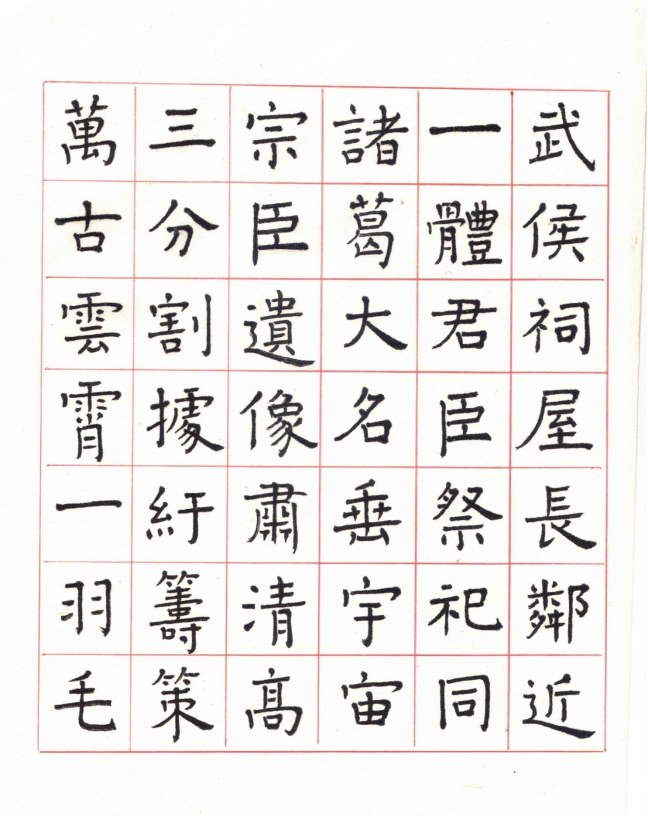 武侯祠屋長鄰近
一體君臣祭祀同
諸葛大名垂宇宙
宗臣遺像肅清高
三分割據紆籌策
萬古雲霄一羽毛